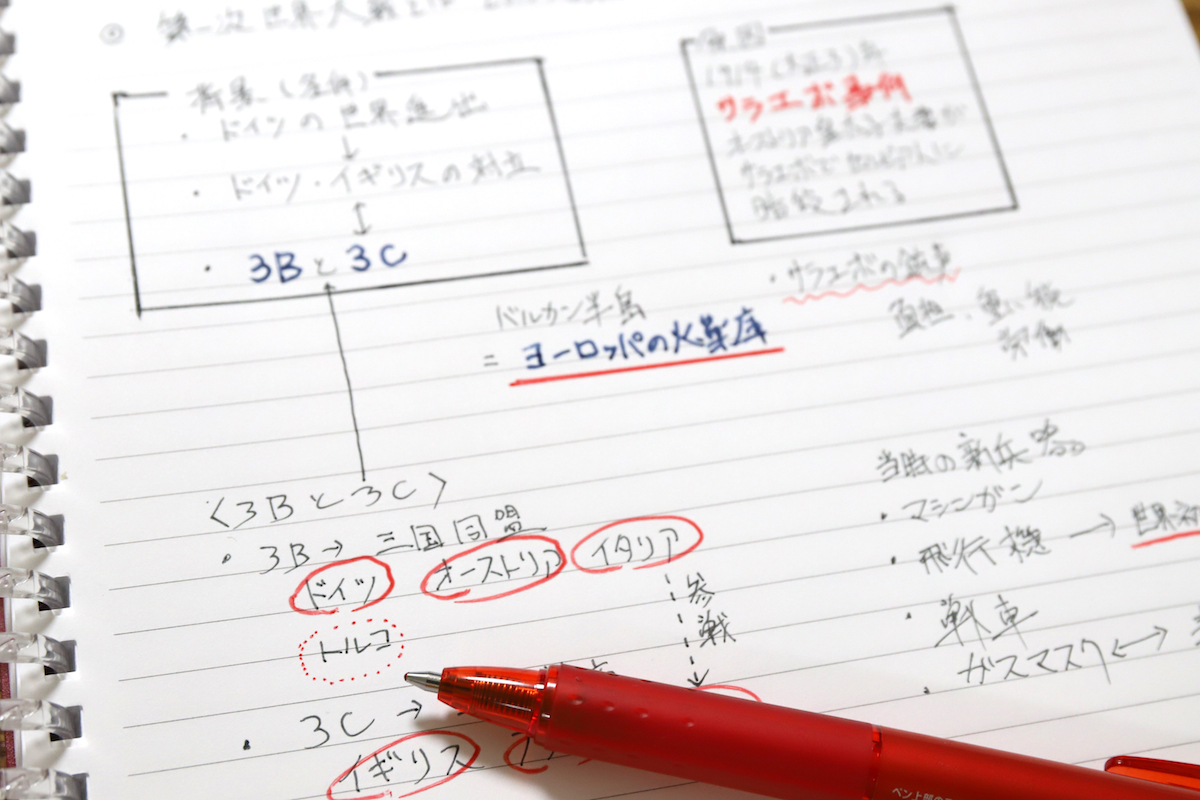 第一次世界大戦とは
背景(
・ドイツの世界進出
↓
・ドイツ・イギリスの対立
↕
・3Bと3C
原因
1914(大正3)年
サラエボ事件
オーストリア
サラエボでセルビア人に
暗殺される
・サラエボの銃声
ドルカン半島
=ヨーロッパの火薬庫
重い税
労働
〈3Bと3C〉
・3B→三国同盟
ドイツ オーストリア イタリア
トルコ
参戦
・3C→
イギリス フ
当時の新兵器
・マシンガン
・飛行機→世界初
・戦車
・ガスマスク↔